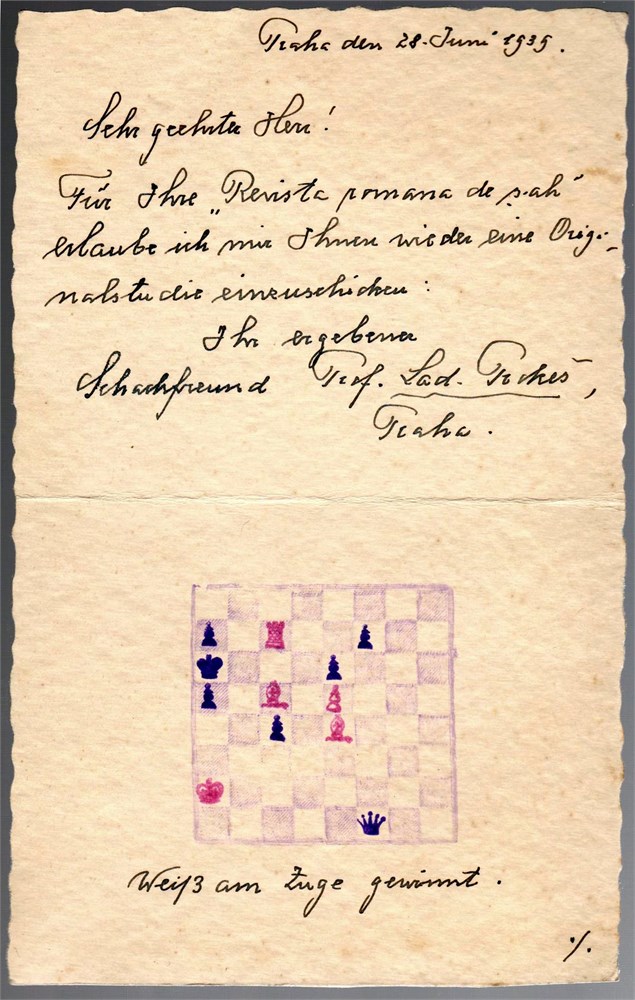 Praha den 28. Juni 1939.
Sehr geehrter Herr!
Für Ihre „Revista romana de șah"
erlaube ich mir Ihnen wieder eine Origi-
nalstudie einzuschicken:
Ihr ergebener
Schachfreund Prof. Lad. Prokeš,
Praha.
Weiß am Zuge gewinnt.
./.